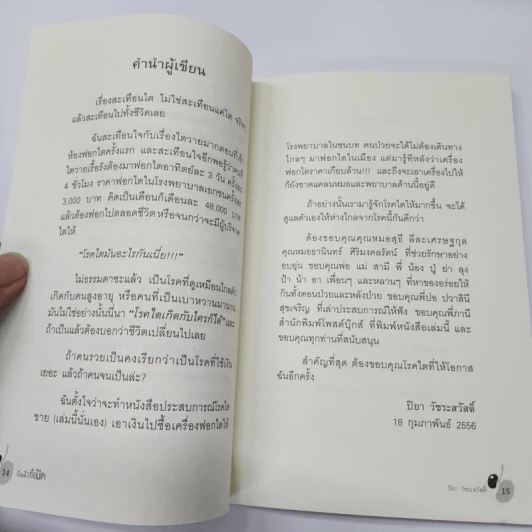 คำนำผู้เขียน
เรื่องสะเทือนไต ไม่ใช่สะเทือนแค่ไต จริงๆ
แล้วสะเทือนไปทั้งชีวิตเลย
ฉันสะเทือนใจกับเรื่องไตวายมากตอนที่เข้า
ห้องฟอกไตครั้งแรก และสะเทือนใจอีกพอรู้ว่าคนที่
ไตวายเรื้อรังต้องมาฟอกไตอาทิตย์ละ 3 วัน ครั้งละ
4 ชั่วโมง ราคาฟอกไตในโรงพยาบาลเอกชนครั้งละ
3,000 บาท คิดเป็นเดือนก็เดือนละ 48,000 บาท
แล้วต้องฟอกไปตลอดชีวิตหรือจนกว่าจะมีผู้บริจาค
ไตให้
"โรคไตมันอะไรกันเนี่ย!!!"
ไม่ธรรมดาซะแล้ว เป็นโรคที่ดูเหมือนไกลตัว
เกิดกับคนสูงอายุ หรือคนที่เป็นเบาหวานมานาน
มันไม่ใช่อย่างนั้นนี่นา "โรคไตเกิดกับใครก็ได้" และ
ถ้าเป็นแล้วต้องบอกว่าชีวิตเปลี่ยนไปเลย
ถ้าคนรวยเป็นคงเรียกว่าเป็นโรคที่ใช้เงิน
เยอะ แล้วถ้าคนจนเป็นล่ะ?
ฉันตั้งใจว่าจะทำหนังสือประสบการณ์โรคไต
ขาย (เล่มนี้นั่นเอง) เอาเงินไปซื้อเครื่องฟอกไตให้
14
โรงพยาบาลในชนบท คนป่วยจะได้ไม่ต้องเดินทาง
ไกลๆ มาฟอกไตในเมือง แต่มารู้ทีหลังว่าเครื่อง
ฟอกไตราคาเกือบล้าน!!! และถึงจะเอาเครื่องไปให้
ก็ยังขาดแคลนหมอและพยาบาลด้านนี้อยู่ดี
ถ้าอย่างนั้นเรามารู้จักโรคไตให้มากขึ้น จะได้
ดูแลตัวเองให้ห่างไกลจากโรคนี้กันดีกว่า
ต้องขอบคุณคุณหมอสุธี ลีละเศรษฐกุล
คุณหมออรานินทร์ ศิริมงคลรัตน์ ที่ช่วยรักษาอย่าง
อบอุ่น ขอบคุณพ่อ แม่ สามี พี่ น้อง ปู่ ย่า ลุง
ป้า น้า อา เพื่อนๆ และหลานๆ ที่หาของอร่อยให้
กินทั้งตอนป่วยและหลังป่วย ขอบคุณพี่ปอ ปวาสินี
สุขเจริญ ที่เล่าประสบการณ์ให้ฟัง ขอบคุณพี่ภานี
สำนักพิมพ์โพสต์บุ๊กส์ ที่พิมพ์หนังสือเล่มนี้ และ
ขอบคุณทุกท่านที่สนับสนุน
สำคัญที่สุด ต้องขอบคุณโรคไตที่ให้โอกาส
ฉันอีกครั้ง
ปิยา วัชระสวัสดิ์
18 กุมภาพันธ์ 2556
ปิยา วัชระสวัสดิ์ 15